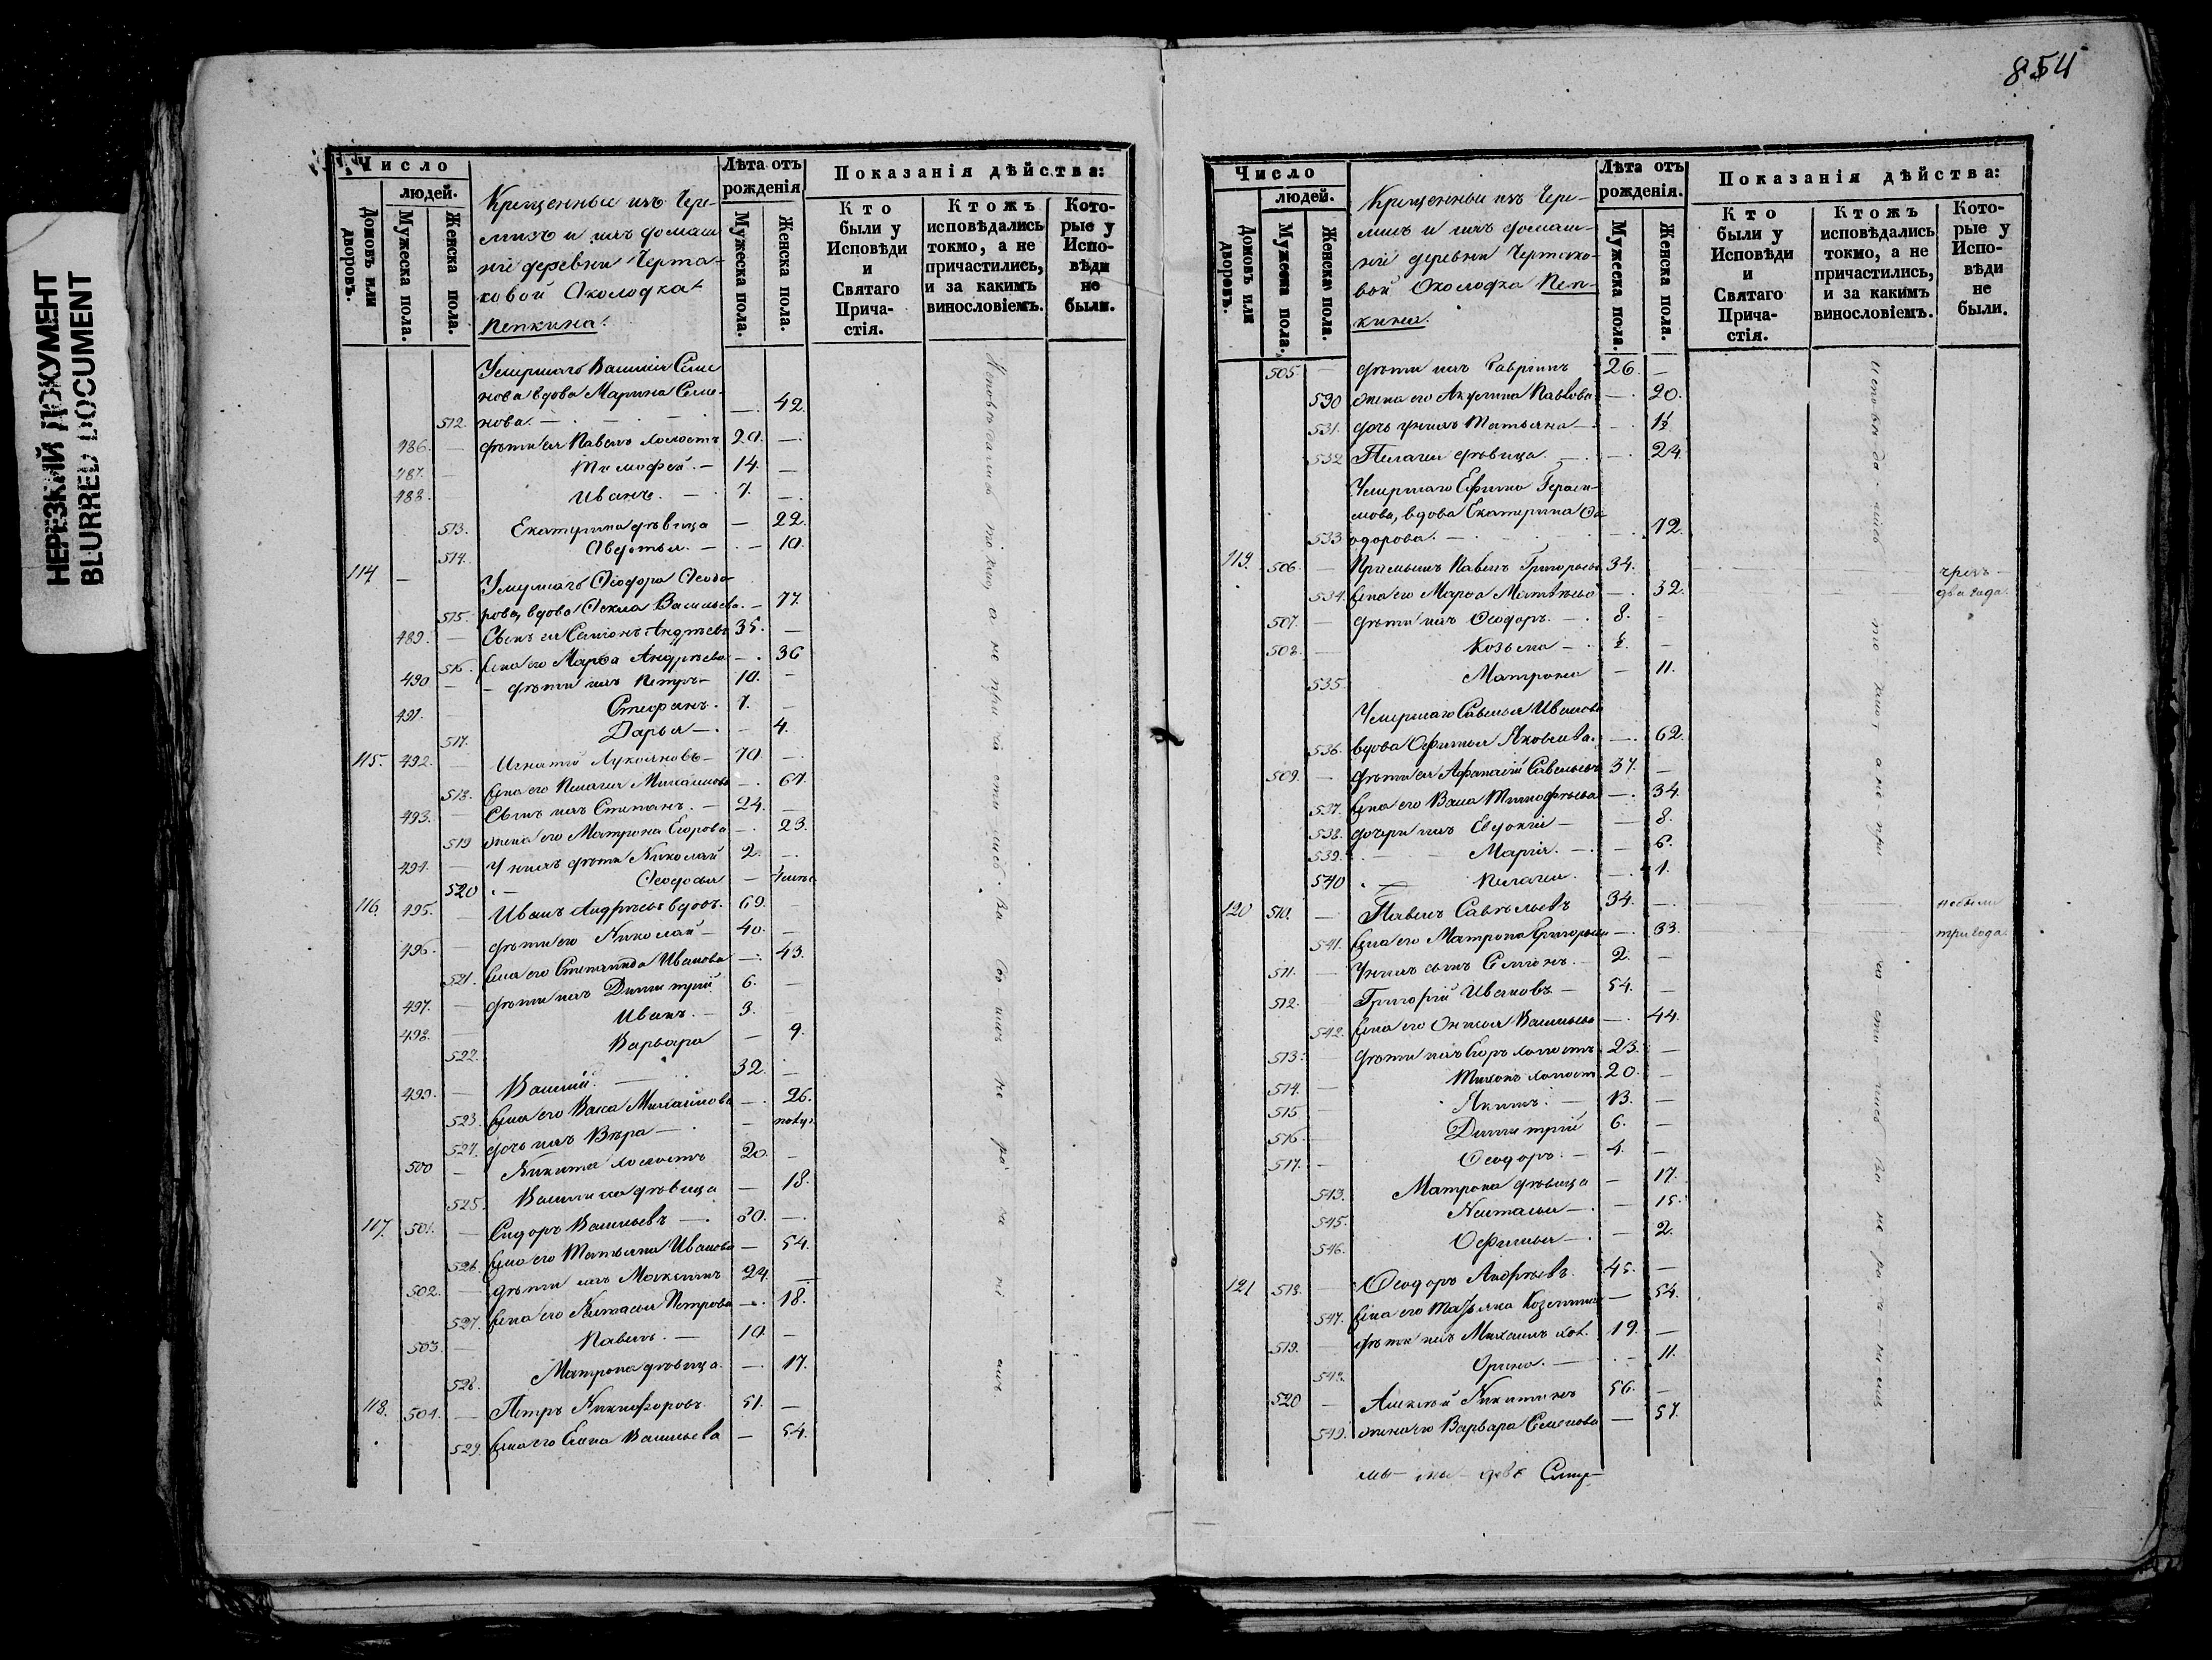 НЕРЕЗКИЙ ДОКУМЕНТ
BLURRED DOCUMENT
854
Число
людей.
Домовъ или дворовъ.
Мужеска пола.
Женска пола.
Крещенные изъ Чере-
мисъ и ихъ домаш
ніе деревни Черта-
ковой Околодка
Пепкина.
Лѣта отъ
рожденія
Мужеска пола.
Женска пола.
Показанія дѣйства:
Кто
были у
Исповѣди
и
Святаго
Прича-
стія.
Ктожъ
исповѣдались
токмо, а не
причастились,
и за какимъ
винословіемъ.
Кото-
рые у
Испо-
вѣди
не
были.
Умершаго Василія Семе
нова вдова Марина Семе-
512. нова. — 42.
486. дѣти ея Павелъ холостъ 20. —
487. Тимофей. — 14. —
488. Иванъ. — 7. —
513. Екатерина дѣвица — 22.
514. Авдотья. — 10.
114 Умершаго Ѳеодора Ѳеодо
515. рова, вдова Ѳекла Васильева. — 77.
489. Сынъ ея Семіонъ Андреевъ 35. —
516. жена его Марѳа Андрѣева — 36
490 дѣти ихъ Петръ — 10. —
491. Стефанъ. 7. —
517. Дарья — 4.
115. 492. Игнатій Лукояновъ — 70. —
518. жена его Пелагия Михаилова — 67.
493. Сынъ ихъ Степанъ. — 24. —
519 жена его Матрона Егорова — 23.
494. У нихъ дѣти Николай 2. —
520 Ѳеодосья —
116. 495. Иванъ Андрѣевъ вдовъ. 69. —
496. дѣти его Николай — 40. —
521. жена его Степанида Иванова — 43.
497. дѣти ихъ Димитрій 6. —
498. Иванъ. — 3. —
522. Варвара — 9.
499. Василій. — 32. —
523. жена его Васса Михайлова — 26.
524. дочь ихъ Вѣра —
500 Никита холостъ 20. —
525. Василиса дѣвица — 18.
117. 501. Сидоръ Васильевъ —
526. жена его Татьяна Иванова — 54.
502. дѣти ихъ Максимъ 24. —
527. жена его Настасья Петрова — 18.
503. Павелъ. — 10 —
528. Матрона дѣвица. — 17.
118. 504. Петръ Никифоровъ. 51. —
529. жена его Елена Васильева — 54.
Исповѣдались токмо, а не причастились за
Число
людей.
Домовъ или дворовъ.
Мужеска пола.
Женска пола.
Крещенные изъ Чере-
мисъ и ихъ домаш-
ніе деревни Чертако-
вой Околодка Пеп-
кина.
Лѣта отъ
рожденія.
Мужеска пола.
Женска пола.
Показанія дѣйства:
Кто
были у
Исповѣди
и
Святаго
Прича-
стія.
Ктожъ
исповѣдались
токмо, а не
причастились,
и за какимъ
винословіемъ.
Кото-
рые у
Испо-
вѣди
не
были.
505. дѣти ихъ Гавріилъ 26. —
530 жена его Акулина Павлова — 20.
531. дочь у нихъ Татьяна —
532 Пелагея дѣвица. — 24
Умершаго Ефима Гераси-
мова, вдова Екатерина Ѳе
533 одорова. — 72.
119. 506. Приемышъ Павелъ Григорьевъ 34. чрезъ
534. жена его Марѳа Матвѣева — 32. два года.
507. дѣти ихъ Ѳеодоръ. — 8. —
508. Козьма —
535. Матрона — 11.
Умершаго Савелья Иванова
536. вдова Офимья Яковлева. — 62.
509. дѣти ея Афанасій Савельевъ 37. —
537. жена его Васса Тимофѣева — 34.
538. дочери ихъ Евдокия — 8.
539. Марія. — 6.
540 Пелагея. — 1.
120 510. Павелъ Савельевъ 34. — небыли
541. жена его Матрона Григорьева — 33. три года.
511. У нихъ сынъ Семіонъ. — 2. —
512. Григорій Ивановъ — 54. —
542. жена его Васильева — 44.
513. дѣти ихъ Егоръ холостъ 23. —
514. Тихонъ холост. 20. —
515 Якимъ. — 13. —
516. Димитрій 6. —
517. Ѳеодоръ. — 4. —
543. Матрона дѣвица — 17.
545. Настасья — 15.
546. Офимья — 2.
121 518. Ѳеодоръ Андрѣевъ. 45. —
547. жена его Татьяна Козьмина — 54.
519. дѣти ихъ Михаилъ хол. 19. —
548. Орина. — 11.
520 Алексѣй Никитинъ 56. —
549. жена его Варвара Семенова — 57.
Исповѣдались токмо, а не причастились